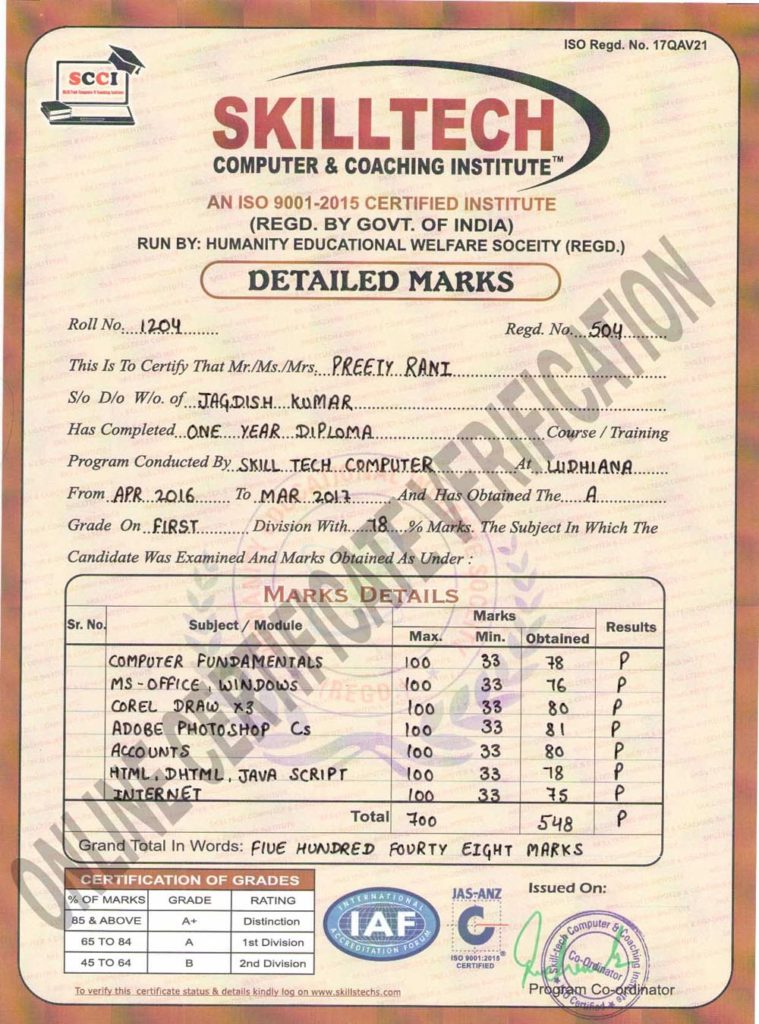 ISO Regd. No. 17QAV21
SCCI
SKILLTECH
COMPUTER & COACHING INSTITUTE™
AN ISO 9001-2015 CERTIFIED INSTITUTE
(REGD. BY GOVT. OF INDIA)
RUN BY: HUMANITY EDUCATIONAL WELFARE SOCEITY (REGD.)
DETAILED MARKS
Roll No. 1204 Regd. No. 504
This Is To Certify That Mr./Ms./Mrs. PREETY RANI
S/o D/o W/o. of JAGDISH KUMAR
Has Completed ONE YEAR DIPLOMA Course / Training
Program Conducted By SKILL TECH COMPUTER At LUDHIANA
From APR 2016 To MAR 2017 And Has Obtained The A
Grade On FIRST Division With 78 % Marks. The Subject In Which The
Candidate Was Examined And Marks Obtained As Under :
MARKS DETAILS
Sr. No. Subject / Module Marks Results
Max. Min. Obtained
COMPUTER FUNDAMENTALS 100 33 78 P
MS-OFFICE, WINDOWS 100 33 76 P
COREL DRAW X3 100 33 80 P
ADOBE PHOTOSHOP Cs 100 33 81 P
ACCOUNTS 100 33 80 P
HTML, DHTML, JAVA SCRIPT 100 33 78 P
INTERNET 100 33 75 P
Total 700 548 P
Grand Total In Words: FIVE HUNDRED FOURTY EIGHT MARKS
ONLINE CERTIFICATE VERIFICATION
CERTIFICATION OF GRADES
% OF MARKS GRADE RATING
85 & ABOVE A+ Distinction
65 TO 84 A 1st Division
45 TO 64 B 2nd Division
INTERNATIONAL
IAF
ACCREDITATION FORUM
JAS-ANZ
C
ISO 9001:2015
CERTIFIED
Issued On:
Skill-tech Computer & Coaching Institute
Co-Ordinator
Program Co-ordinator
To verify this certificate status & details kindly log on www.skillstechs.com